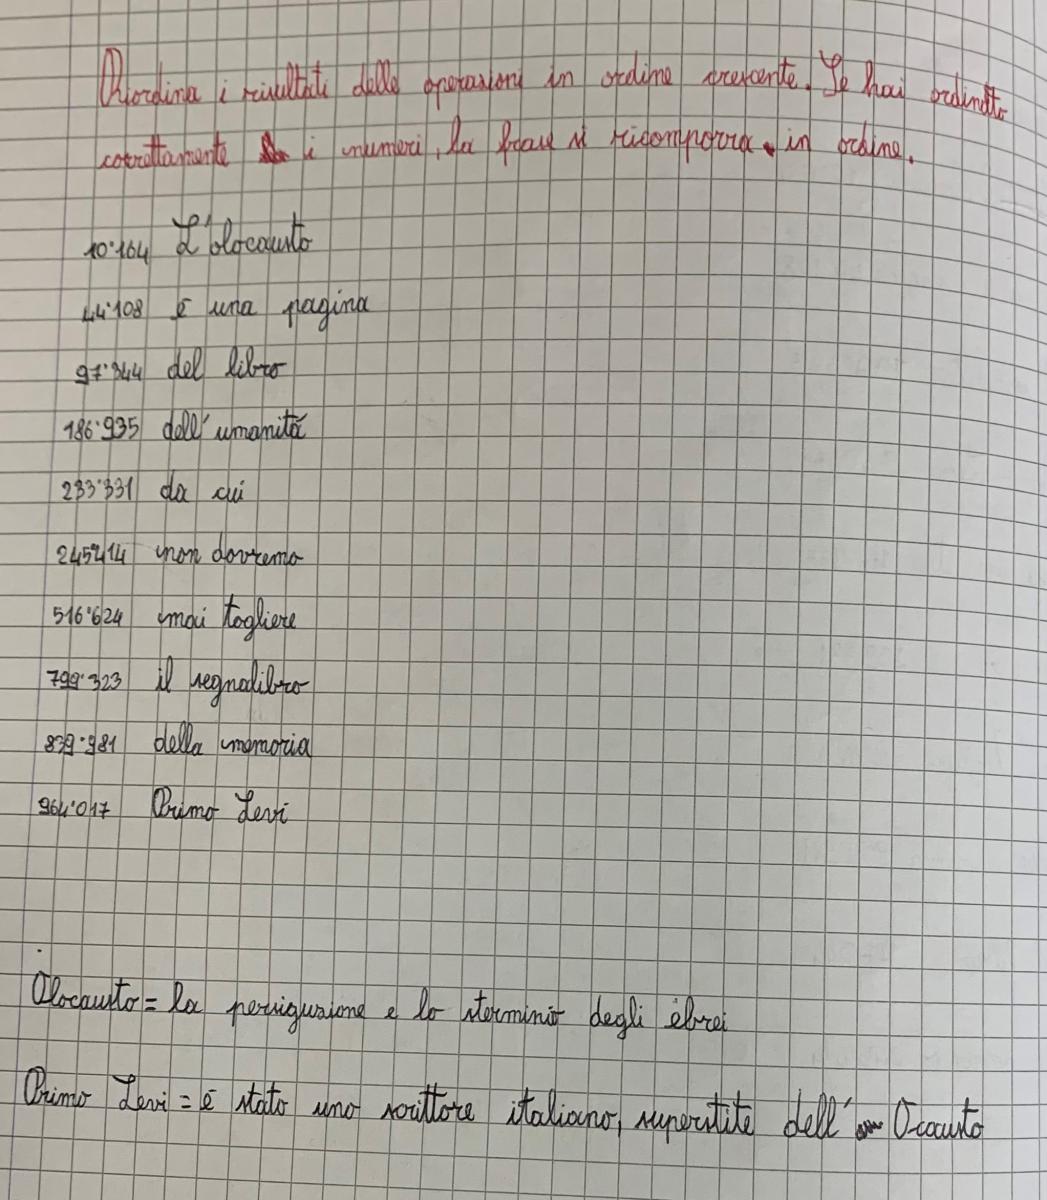 Riordina i risultati delle operazioni in ordine crescente. Se hai ordinato
correttamente i numeri, la frase si ricomporrà in ordine.
10'164 L'olocausto
44'108 è una pagina
97'344 del libro
186'935 dell'umanità
233'331 da cui
245'414 non dovremo
516'624 mai togliere
799'323 il segnalibro
839'981 della memoria
964'017 Primo Levi
Olocausto = la persiguzione e lo sterminio degli ebrei
Primo Levi = è stato uno scrittore italiano, superstite dell' Ocausto